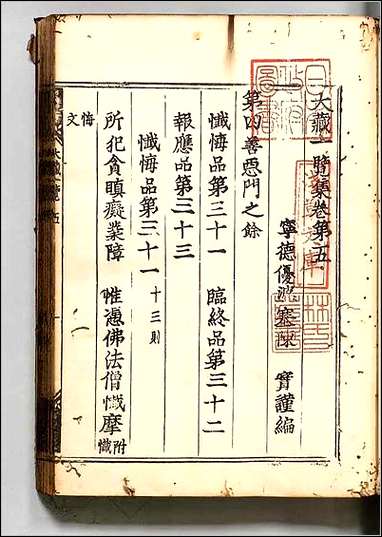 大藏一覽集卷第五
寧德優婆塞陳 實謹編
第四善惡門之餘
懺悔品第三十一 臨終品第三十二
報應品第三十三
懺悔品第三十一 十三則
所犯貪瞋癡業障 惟憑佛法僧懺摩 附懺
悔文
大藏一覽 五